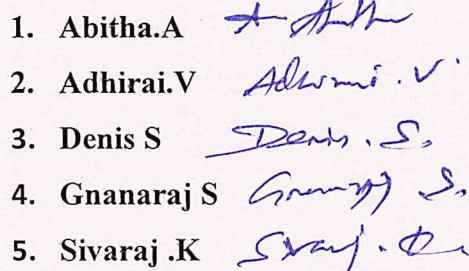 1. Abitha.A
2. Adhirai.V Adhirai . V
3. Denis S Denis . S.
4. Gnanaraj S Gnanaraj S.
5. Sivaraj .K Sivaraj . K